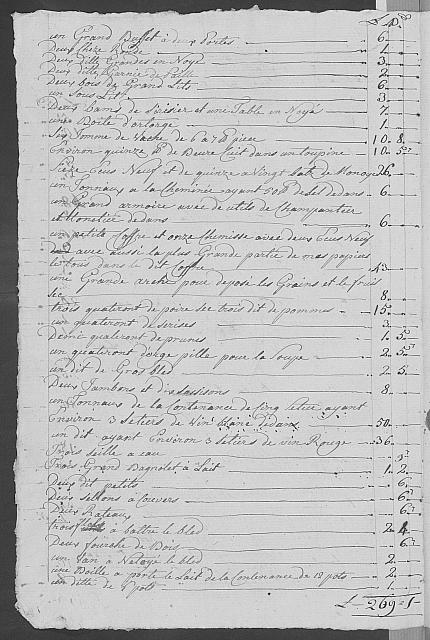 L D
un Grand Buffet à deux Portes 6
Deux Chere Bride 1
Deux ditte Grandes en Noyé 3
Deux ditte Garnie de Paille 2
Deux bois de Grand Lits 6
un Sous Lits 3
Deux bams de Serisier et une Table en Noyé 1
une Boite d'orloge 1
Six Tomme de Vache de 6 à 7 ℔ piece 10 8
Environ quinze ℔ de Beure Cuit dans un toupine 10 5
Seize Ecus Neuf et de quinze à Vingt batz de Monoye 26
un Tonnaux a la Cheminée ayant 50 ℔ de Sel dedans 6
un Grand armoire avec de utils de Champanteer
et Monetier dedans 6
un petite Coffre et onze Chemisse avec deux Ecus Neuf
avec aussi la plus Grande partie de mes papiers
le tous dans le dit Coffre 43
une Grande arche pour depose les Grains et le fruis
Sec 8
trois quateront de poire Sec trois dit de pommes 15
un quateront de Serises 3
Demi quateront de prunes 1 5
un quateront d'orge pille pour la Soupe 2 5
un dit de Gros bled 2 5
Deux Jambons et dix Sasisons 8
un Tonnaux de la Contenance de Cinq Setier ayant
Environ 3 Setiers de Vin blanc dedans 50
un dit ayant Environ 3 Setiers de vin Rouge 36
Trois Seille a eau
Trois Grand Bagnolet à Lait 1 2
Deux dit petits 6
Deux Sellons à Couvers 6
Deux Rateaux 6
trois à battre le bled 2 4
Deux fourche de Bois 6
un Van à Netoyé le bled 2
une Boille a porte le Lait de la Contenance de 18 pots 2
un ditte de 8 pots 1
L 269 1